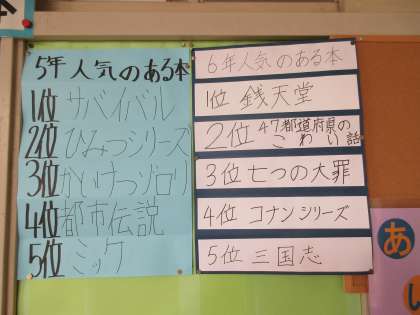 5年 人気のある本
1位 サバイバル
2位 ひみつシリーズ
3位 かいけつゾロリ
4位 都市伝説
5位 ミック
6年人気のある本
1位 銭天堂
2位 47都道府県の
こわい話
3位 七つの大罪
4位 コナンシリーズ
5位 三国志
あ
い